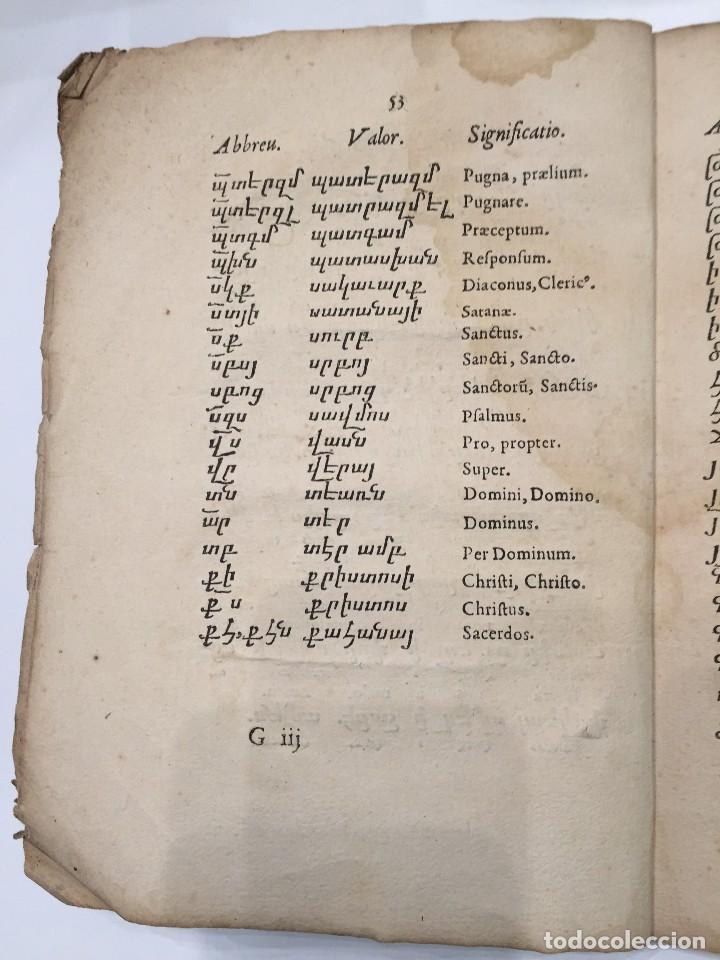 53
Abbreu. Valor. Significatio.
պ̅տէրզմ պատէրազմ Pugna, prælium.
պ̅տէրզլ պատրազմէլ Pugnare.
պ̅տգմ պատգամ Præceptum.
պ̅խն պատասխան Reſponſum.
ս̅կք սակաւարք Diaconus, Cleric⁹.
ս̅տյի սատանայի Satanæ.
ս̅ք սուրբ Sanctus.
ս̅բոյ սրբոյ Sancti, Sancto.
սբոց սրբոց Sanctorũ, Sanctis.
ս̅զս սավմոս Pſalmus.
վ̅ս վասն Pro, propter.
վ̅ր վէրայ Super.
տ̅ն տէառն Domini, Domino.
տէր Dominus.
տբ տէր ամբ Per Dominum.
ք̅ի քրիստոսի Christi, Christo.
ք̅ս քրիստոս Christus.
քահանայ Sacerdos.
G iij
todocoleccion
todocoleccion.net